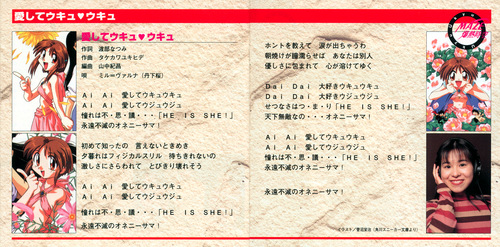 愛してウキュ♥ウキュ
愛してウキュ♥ウキュ
作詞 渡部なつみ
作曲 タケカワユキヒデ
編曲 山中紀昌
唄 ミル=ヴァルナ(丹下桜)
Ai Ai 愛してウキュウキュ
Ai Ai 愛してウジュウジュ
憧れは不・思・議・・・「HE IS SHE!」
永遠不滅のオネニーサマ!
初めて知ったの 言えないときめき
夕暮れはフィジカルスリル 待ちきれないの
激しさにさらわれて とびきり壊れそう
Ai Ai 愛してウキュウキュ
Ai Ai 愛してウジュウジュ
憧れは不・思・議・・・「HE IS SHE!」
永遠不滅のオネニーサマ!
ホントを教えて 涙が出ちゃうわ
朝焼けが瞳濡らせば あなたは別人
優しさに包まれて 心が溶けてゆく
Dai Dai 大好きウキュウキュ
Dai Dai 大好きウジュウジュ
せつなさはつ・ま・り「HE IS SHE!」
天下無敵なの・・・オネニーサマ!
Ai Ai 愛してウキュウキュ
Ai Ai 愛してウジュウジュ
憧れは不・思・議・・・「HE IS SHE!」
永遠不滅のオネニーサマ!
永遠不滅のオネニーサマ!
MAZE